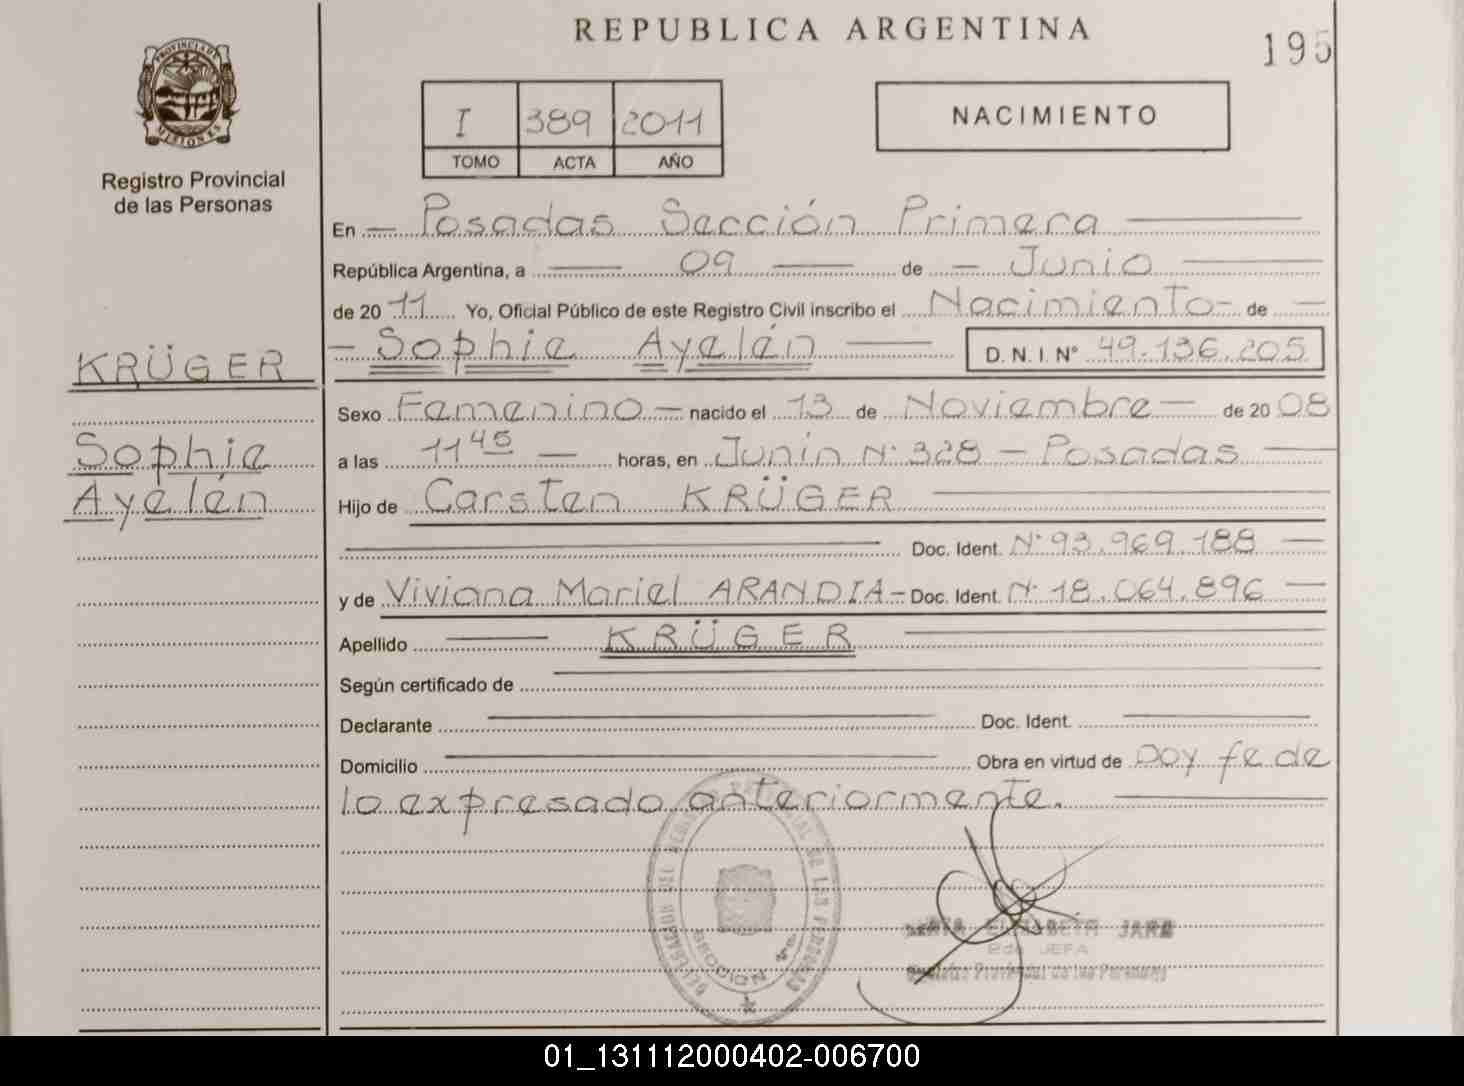 REPUBLICA ARGENTINA
195
PROVINCIA DE
MISIONES
Registro Provincial
de las Personas
I 389 2011
TOMO ACTA AÑO
NACIMIENTO
En Posadas Sección Primera
República Argentina, a 09 de Junio
de 2011 Yo, Oficial Público de este Registro Civil inscribo el Nacimiento de
Sophie Ayelén D. N. I. Nº 49.136.205
KRÜGER
Sophie
Ayelén
Sexo Femenino nacido el 13 de Noviembre de 2008
a las 11 45 horas, en Junin Nº 328 - Posadas
Hijo de Carsten KRÜGER
Doc. Ident. Nº 93.969.188
y de Viviana Mariel ARANDIA - Doc. Ident. Nº 18.064.896
Apellido KRÜGER
Según certificado de
Declarante Doc. Ident.
Domicilio Obra en virtud de Doy fe de
lo expresado anteriormente.
SECCION
ELIZABETH JARA
JEFA
Provincial de las Personas
01_131112000402-006700